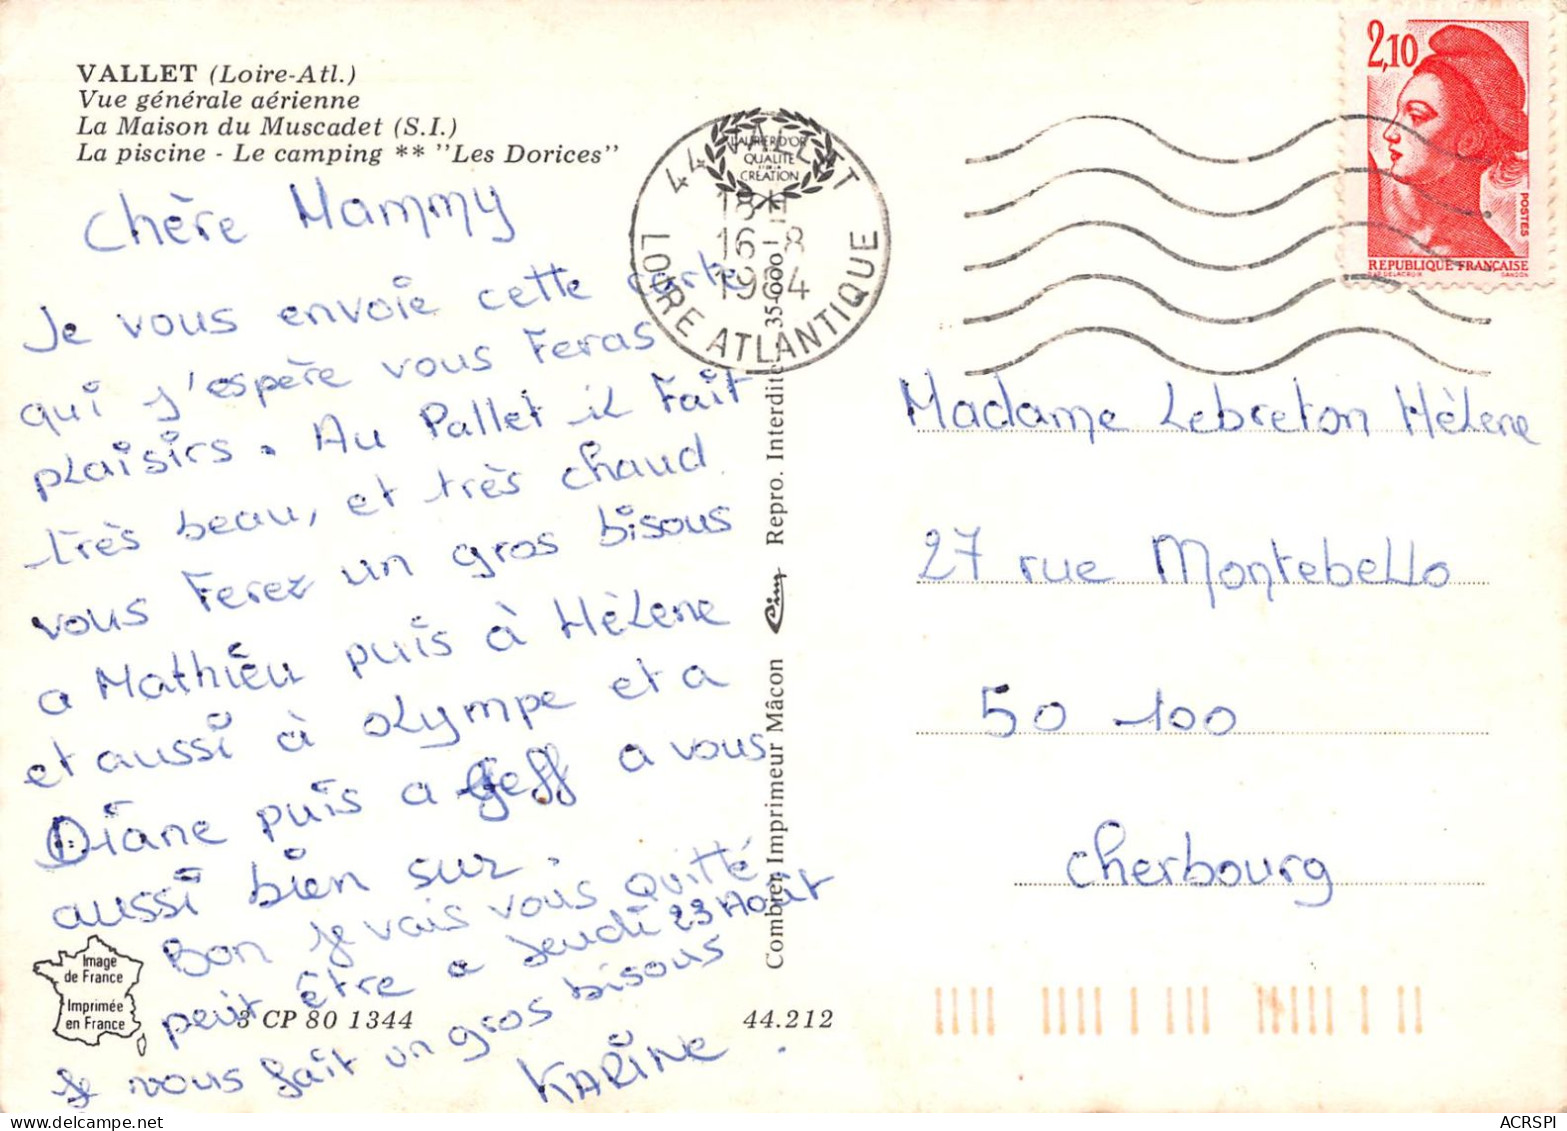 VALLET (Loire-Atl.)
Vue générale aérienne
La Maison du Muscadet (S.I.)
La piscine - Le camping ** "Les Dorices"
Chère Mammy
Je vous envoie cette carte
qui j'espère vous Feras
plaisirs. Au Pallet il Fait
très beau, et très chaud
vous Ferez un gros bisous
a Mathieu puis à Hèlene
et aussi à olympe et a
Diane puis a Jeff a vous
aussi bien sur.
Bon je vais vous quitté
peut être a Jeudi 23 Août
Je vous fait un gros bisous
KARINE.
Image
de France
Imprimée
en France
3 CP 80 1344
44.212
Combier Imprimeur Mâcon Cim Repro. Interdite 35-000
LAURIER D'OR
QUALITÉ
CRÉATION
44 VALLET
18H
16-8
1984
LOIRE ATLANTIQUE
2,10
POSTES
REPUBLIQUE FRANÇAISE
D'AP. DELACROIX GANDON
Madame Lebreton Hèlene
27 rue Montebello
50 100
Cherbourg
ACRSPI